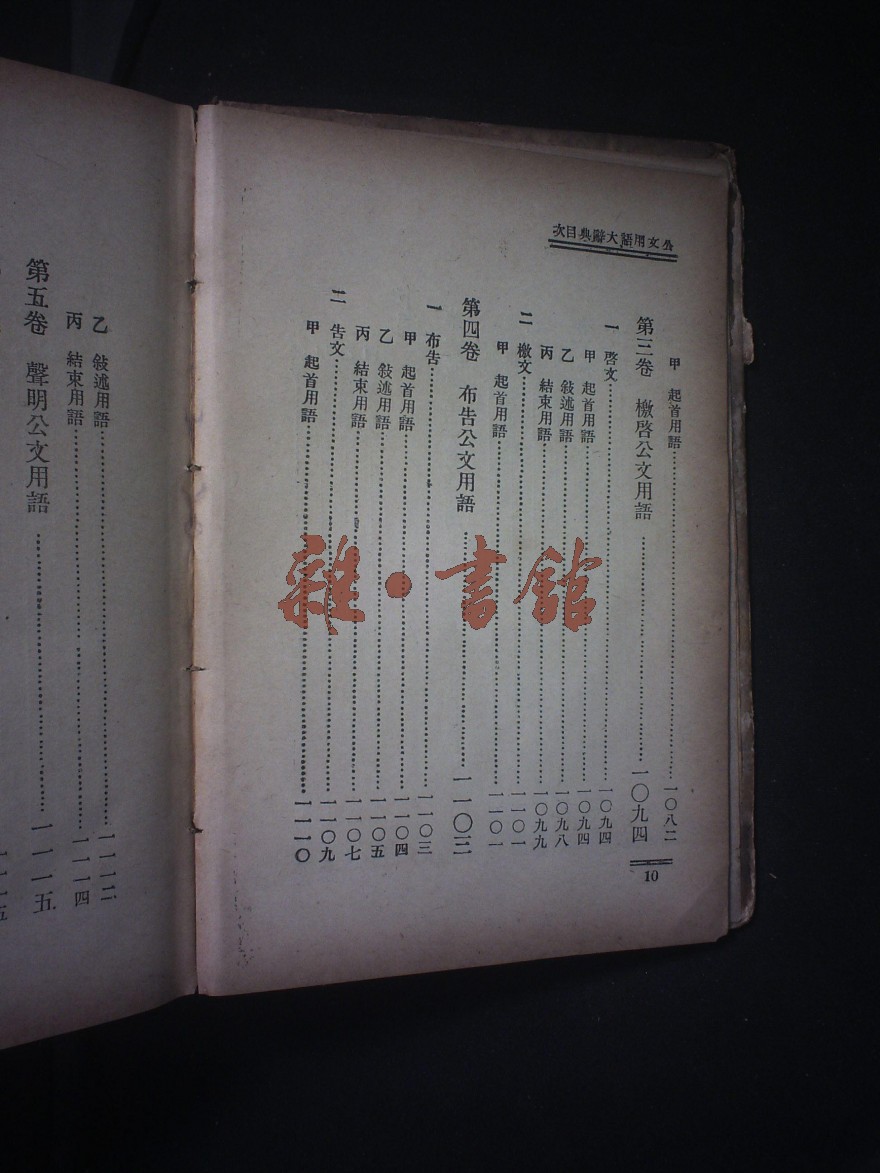 公文用語大辭典目次
甲 起首用語……一〇八二
第三卷 檄啓公文用語……一〇九四
一 啓文……一〇九四
甲 起首用語……一〇九四
乙 敍述用語……一〇九八
丙 結束用語……一〇九九
二 檄文……一一〇一
甲 起首用語……一一〇一
第四卷 布告公文用語……一一〇三
一 布告……一一〇三
甲 起首用語……一一〇四
乙 敍述用語……一一〇五
丙 結束用語……一一〇七
二 告文……一一〇九
甲 起首用語……一一一〇
10
乙 敍述用語……一一一二
丙 結束用語……一一一四
第五卷 聲明公文用語……一一一五
雜·書館